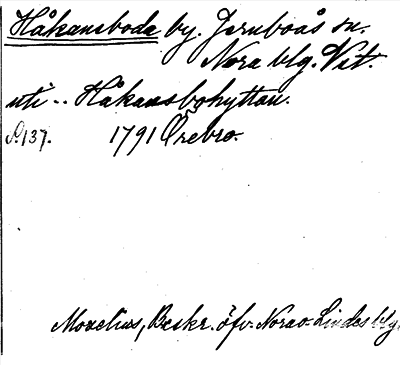 Håkansboda by. Jernboås sn.
Nora blg. Vst.
uti .. Håkansbohyttan.
S. 137. 1791 Örebro.
Moxelius, Beskr. öfv. Nora o. Lindes blg.